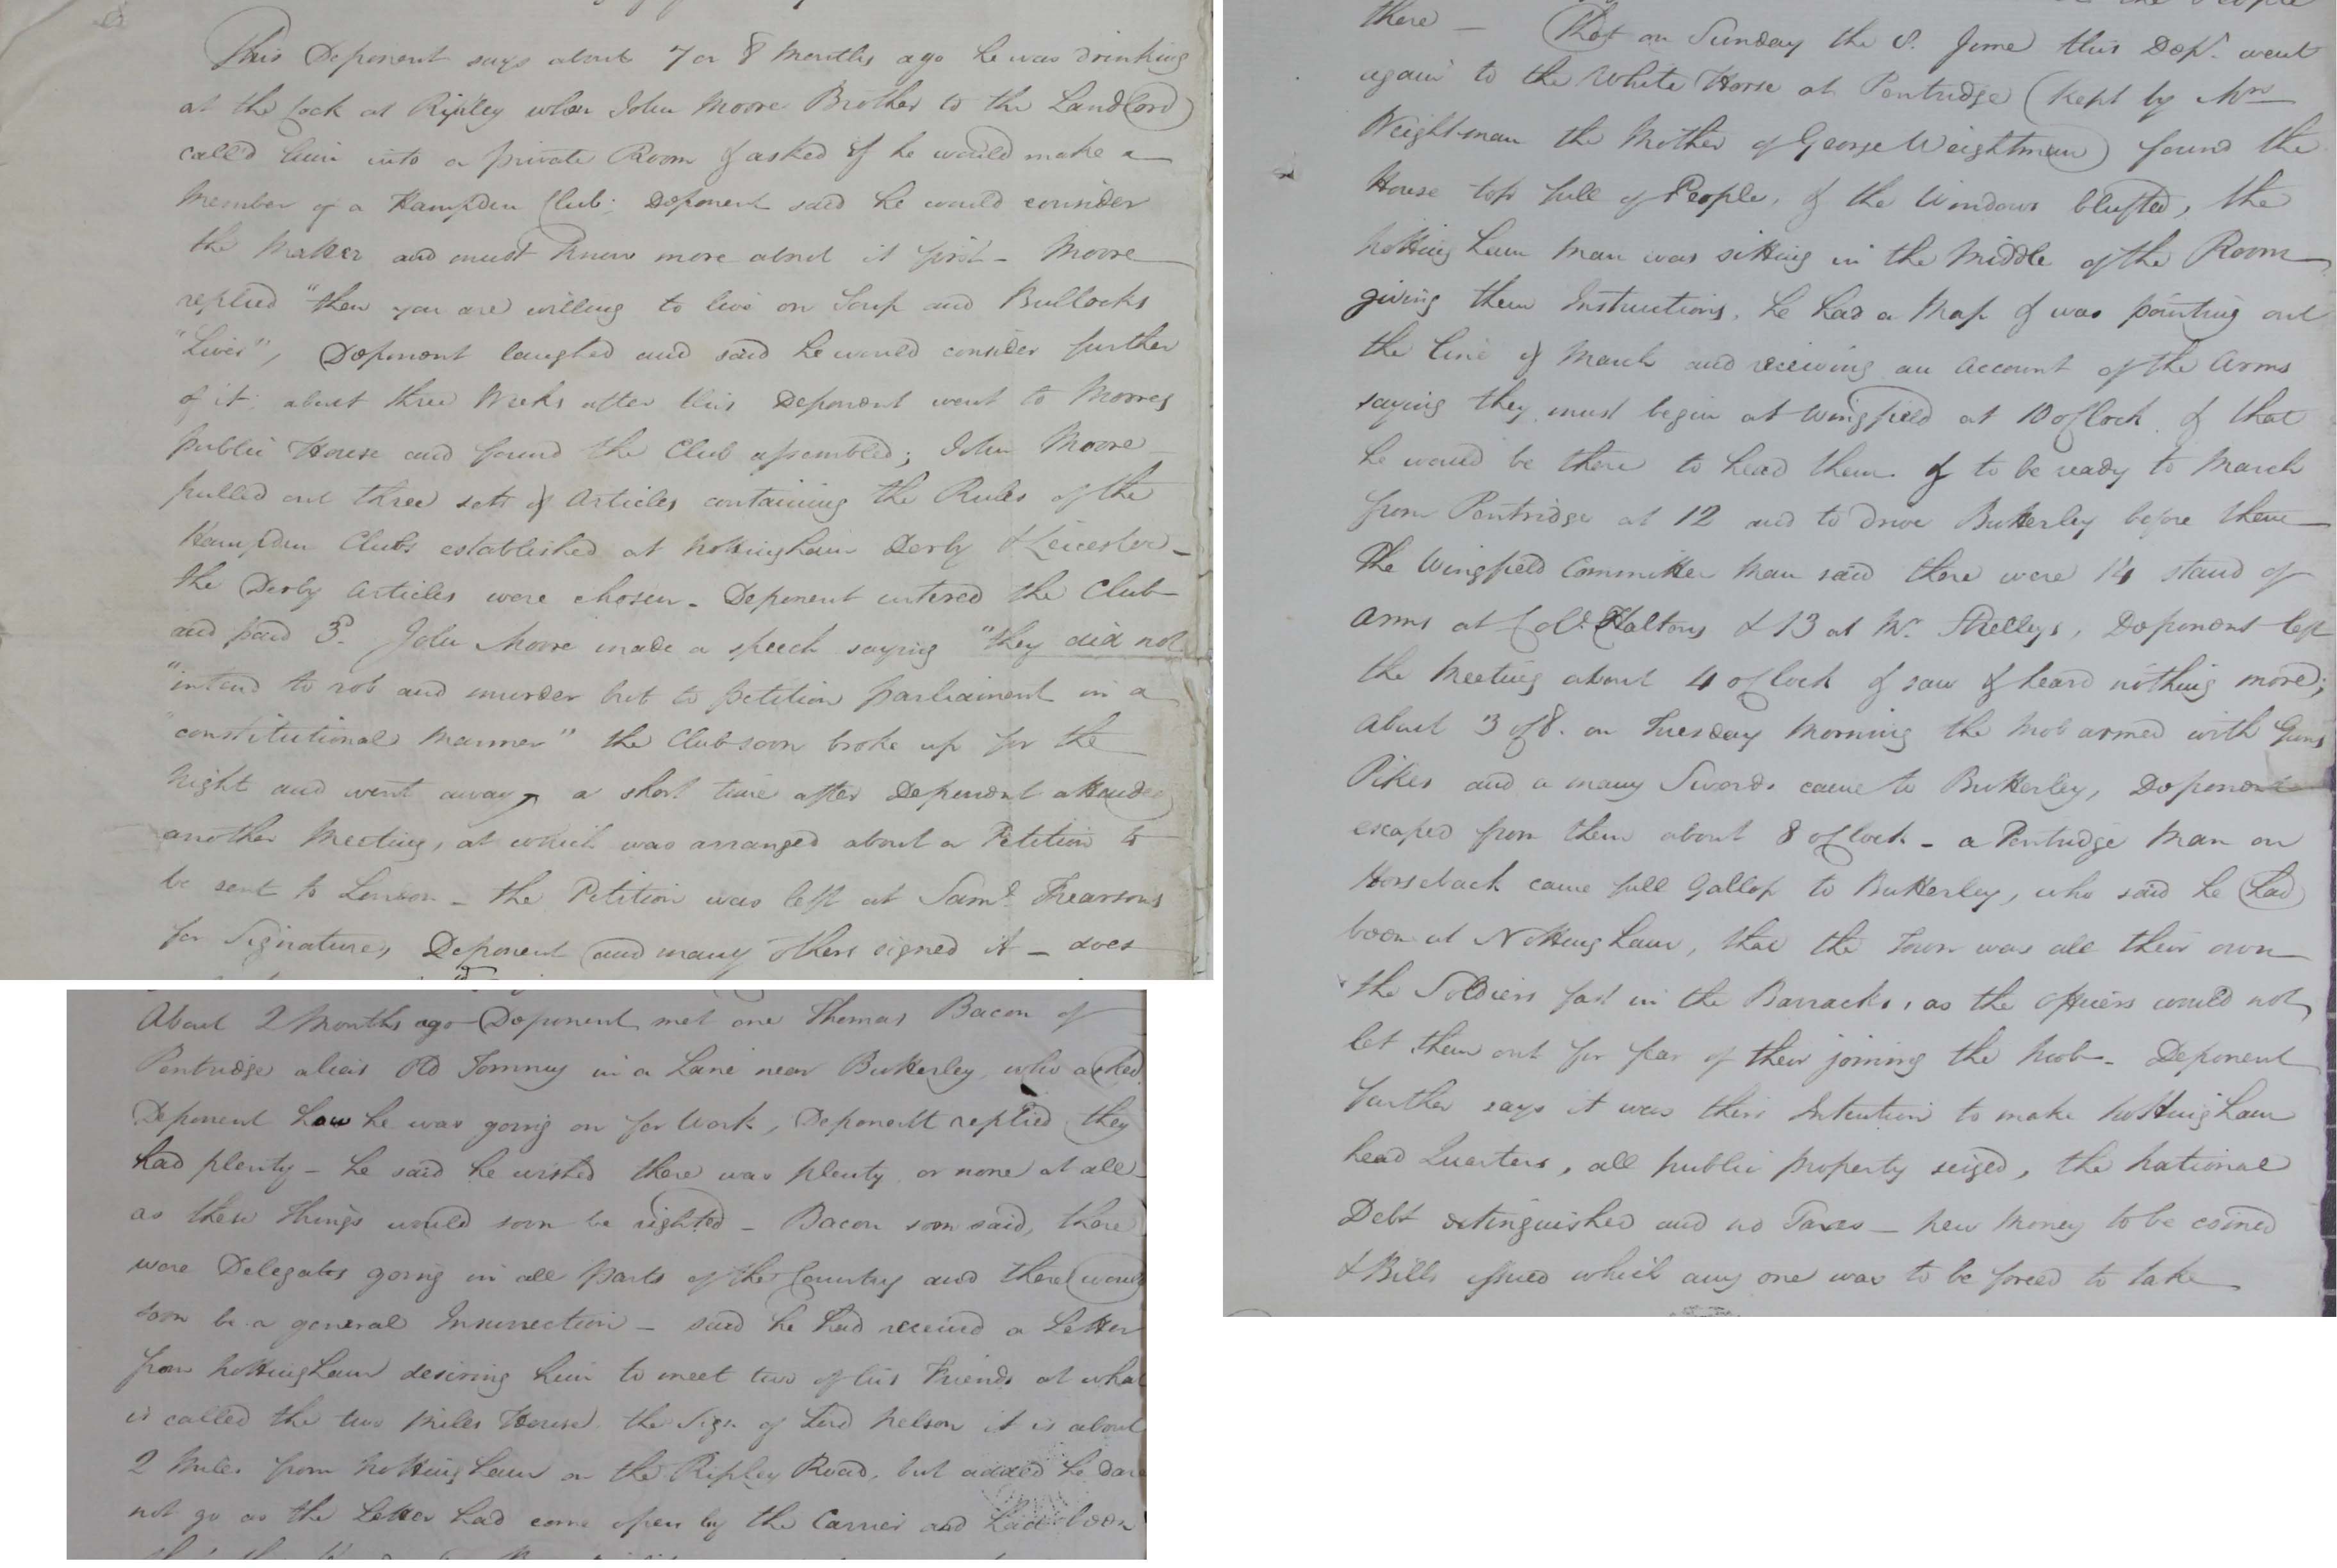 This Deponent says about 7 or 8 Months ago he was drinking
at the Cock at Ripley when John Moore Brother to the Landlord
called him into a private Room & asked if he would make a
Member of a Hampden Club; Deponent said he would consider
the Matter and must know more about it first - Moore
replied "then you are willing to live on Soup and Bullocks
"Liver", Deponent laughed and said he would consider further
of it; about three Weeks after this Deponent went to Moores
public House and found the Club assembled; John Moore
pulled out three sets of Articles containing the Rules of the
Hampden Clubs established at Nottingham Derby & Leicester -
the Derby Articles were chosen - Deponent entered the Club
and paid 3d. John Moore made a speech saying "they did not
"intend to rob and murder but to petition parliament in a
"constitutional Manner" the Club soon broke up for the
Night and went away, a short time after Deponent attended
another Meeting, at which was arranged about a Petition to
be sent to London - the Petition was left at Saml. Fearsons
for Signatures, Deponent and many others signed it - does
About 2 Months ago Deponent met one Thomas Bacon of
Pentridge alias Old Tommy in a Lane near Butterley who asked
Deponent how he was going on for Work, Deponent replied they
had plenty - he said he wished there was plenty or none at all
as these things would soon be righted - Bacon soon said, there
were Delegates going in all parts of the Country and there would
soon be a general Insurrection - said he had received a Letter
from Nottingham desiring him to meet two of his Friends at what
is called the two Miles House, the Sign of Lord Nelson it is about
2 Miles from Nottingham on the Ripley Road, but added he dare
not go as the Letter had come open by the Carrier and had been
there - That on Sunday the 8. June this Dept. went
again to the White Horse at Pentridge (kept by Mrs
Weightman the Mother of George Weightman) found the
House top full of People, & the Windows blufted, the
Nottingham Man was sitting in the Middle of the Room
giving them Instructions, he had a Map & was pointing out
the line of March and receiving an Account of the Arms
saying they must begin at Wingfield at 10 oClock & that
he would be there to head them & to be ready to March
from Pentridge at 12 and to drive Butterley before them
The Wingfield Committee Man said there were 14 stand of
Arms at Col. Haltons & 13 at Mr. Strelleys, Deponent left
the Meeting about 4 oClock & saw & heard nothing more;
about 3 of 8. on Tuesday Morning the Mob armed with Guns
Pikes and a many Swords came to Butterley, Deponent
escaped from them about 8 oClock - a Pentridge Man on
Horseback came full Gallop to Butterley, who said he had
been at Nottingham, that the Town was all their own
the Soldiers fast in the Barracks, as the Officers would not
let them out for fear of their joining the Mob - Deponent
further says it was their Intention to make Nottingham
head Quarters, all public property seized, the National
Debt extinguished and no Taxes - New Money to be coined
& Bills issued which any one was to be forced to take